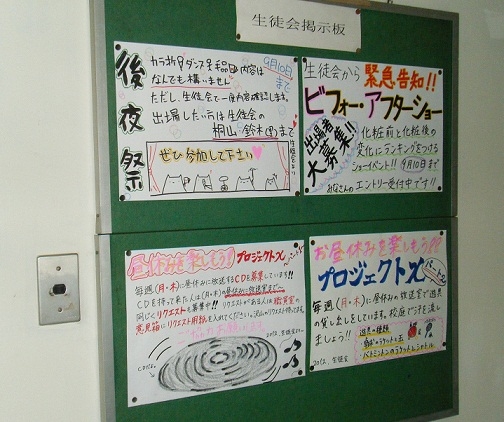 生徒会掲示板
後夜祭
カラオケ?ダンス?手品?内容は
なんでも構いません
9月10日
まで
ただし、生徒会で一度内容確認します。
出場したい方は生徒会の
桐山・鈴木(男)まで
ぜひ参加して下さい♡
生徒会より
生徒会から
緊急告知!!
ビフォー・アフターショー
出場者
大募集!!
化粧前と化粧後の
変化にランキングをつける
ショーイベント!!
9月10日まで
みなさんの
エントリー受付中です!!
昼休みを楽しもう!
プロジェクトX
毎週(月・木)に昼休みに放送するCDを募集しています!!
CDを持って来た人は(月・木)の昼休みに放送室まで…
同じくリクエストも募集中!!リクエストがある人は職員室の
意見箱にリクエスト用紙を入れてください。
ご協力お願いします
お昼休みを楽しもう??
プロジェクトX
パート2
毎週(月・木)に昼休みの放送室で遊具
の貸し出しをしています。校庭で汗を流し
ましょう!!
遊具の種類
・バトミントンのラケットとシャトル